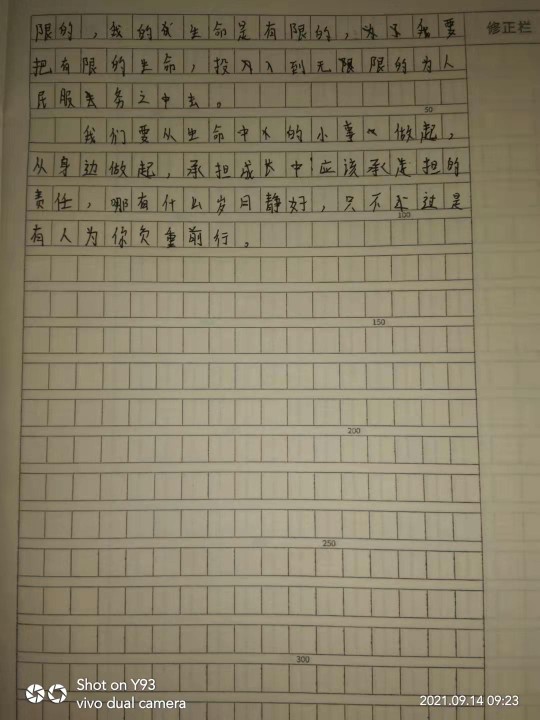 限的，我的生命是有限的，我要 修正栏
把有限的生命，投入到无限限的为人
民服务之中去。
50
我们要从生命中的小事做起，
从身边做起，承担成长中应该承担的
责任，哪有什么岁月静好，只不过是
100
有人为你负重前行。
150
200
250
300
Shot on Y93
vivo dual camera
2021.09.14 09:23